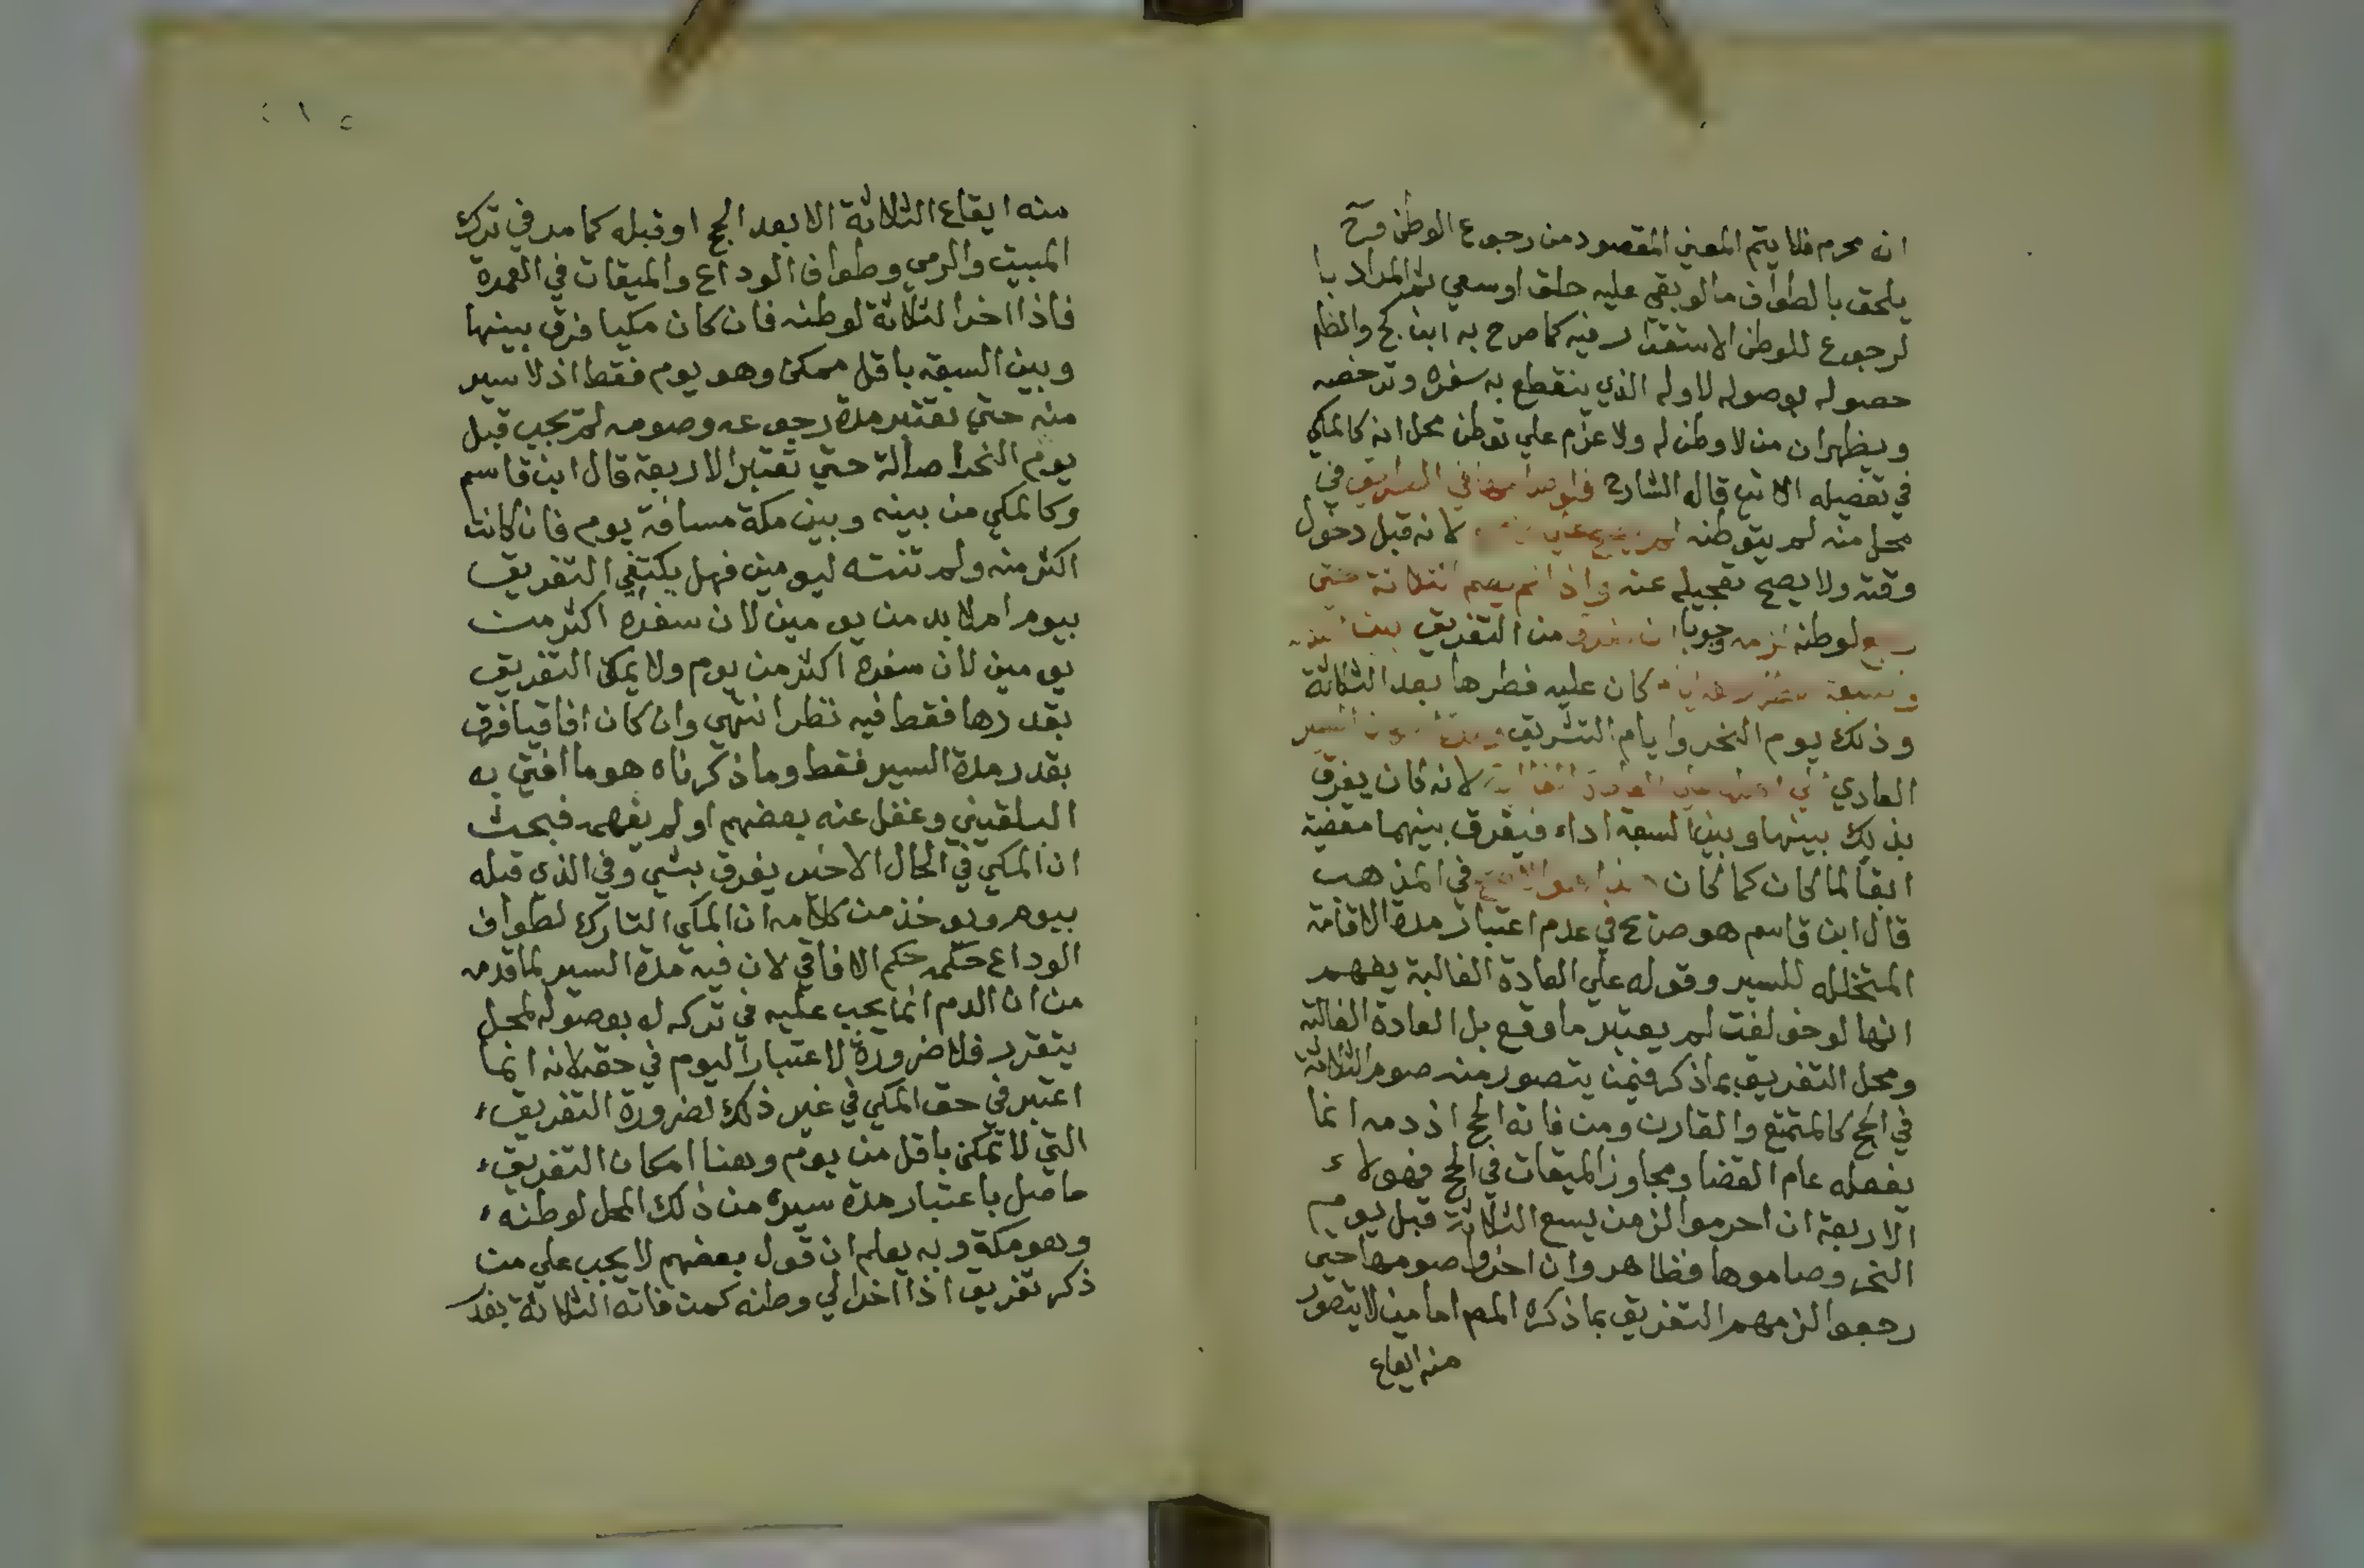 انه محرم فلا يتم المعني المقصود من رجوع الوطن وح
يلحق بالطواف مالو بقي عليه حلق او سعي ثم المراد با
لرجوع للوطن الاستقرار فيه كما صرح به ابن كج والظا
حصوله بوصوله لاوله الذي ينقطع به سفره وترخصه
ويظهر ان من لا وطن له ولا عزم علي توطن محل انه كالمكي
في تفصيله الاتي قال الشارح في
محل منه لم يتوطنه لانه قبل دخول
وقته ولا يصح تعجيله عنه واذا لم يصم الثلاثة حتي
رجع لوطنه لزمه وجوبا ان يفرق من التفريق
كان عليه فطرها بعد الثلاثة
وذلك يوم النحر وايام التشريق السير
العادي لانه كان يفرق
بذلك بينها وبين السبعة اداء فيفرق بينهما مقضية
ابقا لما كان كما كان في المذهب
قال ابن قاسم هو صريح في عدم اعتبار مدة الاقامة
المتخلله للسير وقوله علي العادة الغالبة يفهم
انها لو خولفت لم يعتبر ما وقع بل العادة الغالبة
ومحل التفريق بما ذكر فيمن يتصور منه صوم الثلاثة
في الحج كالمتمتع والقارن ومن فاته الحج اذ دمه انما
يفعله عام القضا ومجاوز الميقات في الحج فهولاء
الاربعة ان احرموا لزمن يسع الثلاثة قبل يوم
النحر وصاموها فظاهر وان اخروا صومها حتي
رجعوا لزمهم التفريق بما ذكره المص اما من لا يتصور
منه ايقاع
منه ايقاع الثلاثة الا بعد الحج او قبله كما مر في ترك
المبيت والرمي وطواف الوداع والميقات في العمرة
فاذا اخر الثلاثة لوطنه فان كان مكيا فرق بينها
وبين السبعة باقل ممكن وهو يوم فقط اذ لا سير
منه حتي تعتبر مدة رجوعه وصومه لم يجب قبل
يوم النحر اصالة حتي تعتبر الاربعة قال ابن قاسم
وكالمكي من بينه وبين مكة مسافة يوم فان كانت
اكثر منه ولم تنته ليومين فهل يكتفي التفريق
بيوم ام لا بد من يومين لان سفره اكثر من
يومين لان سفره اكثر من يوم ولا يمكن التفريق
بقدرها فقط فيه نظر انتهي وان كان افاقيا فرق
بقدر مدة السير فقط وما ذكرناه هو ما افتي به
البلقيني وغفل عنه بعضهم او لم يفهمه فبحث
ان المكي في الحال الاخير يفرق بشي وفي الذي قبله
بيوم ويوخذ من كلامه ان المكي التارك لطواف
الوداع حكمه حكم الافاقي لان فيه مدة السير لما قدمه
من ان الدم انما يجب عليه في تركه له بوصوله لمحل
يتقرر فلا ضرورة لاعتبار اليوم في حقه لانه انما
اعتبر في حق المكي في غير ذلك لضرورة التفريق
التي لا تمكن باقل من يوم وهنا امكان التفريق
حاصل باعتبار مدة سيره من ذلك المحل لوطنه
وهو مكة وبه يعلم ان قول بعضهم لا يجب علي من
ذكر تفريق اذا اخر الي وطنه كمن فاته الثلاثة بغير